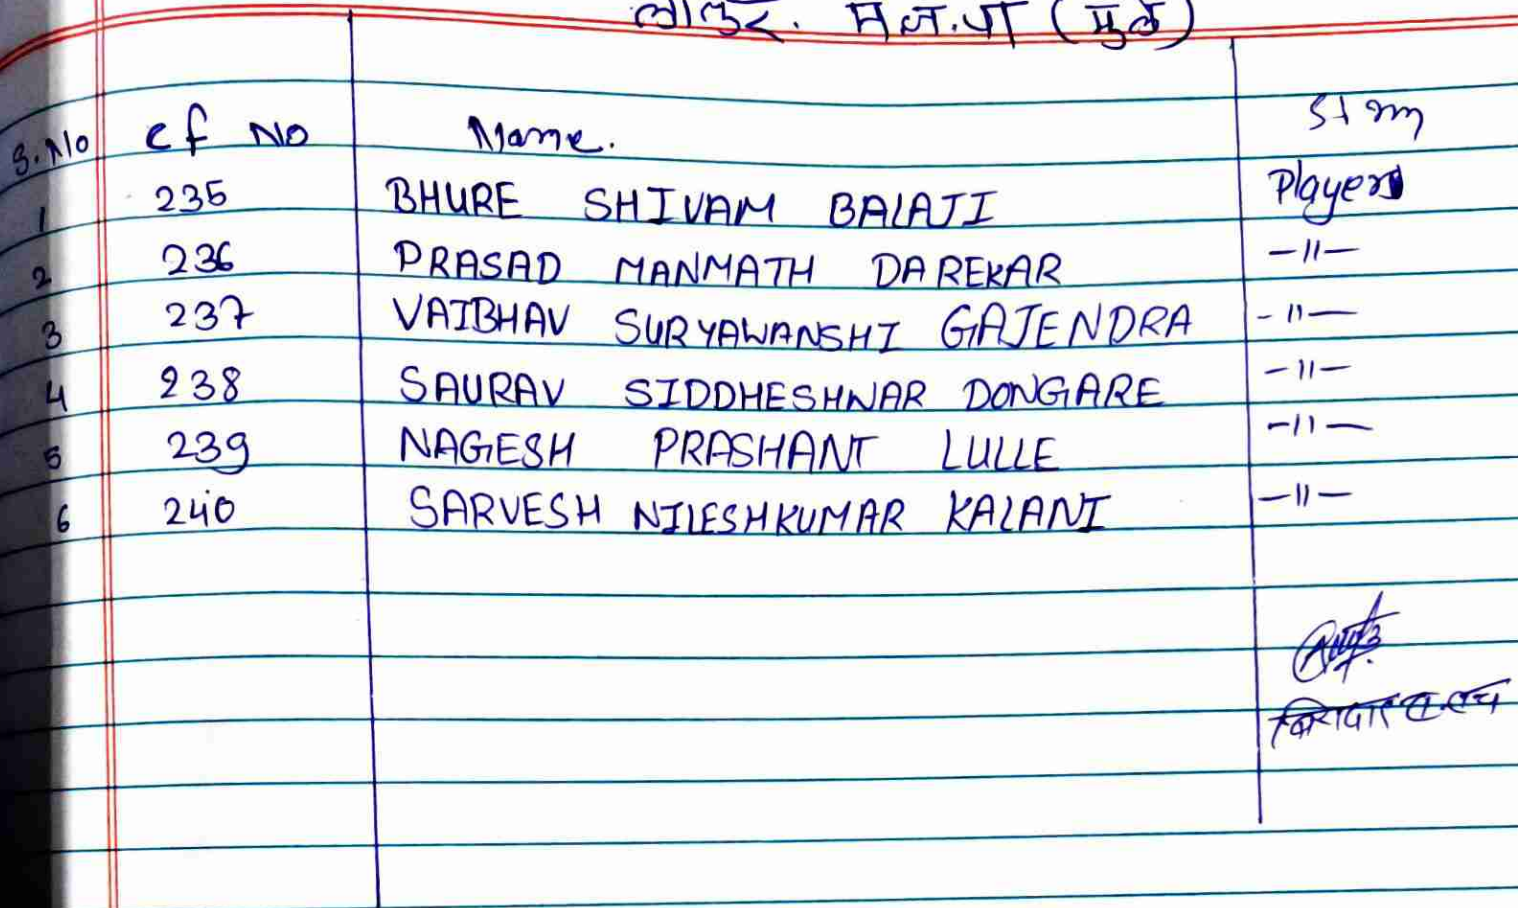 लातूर. म.न.पा (मुले)
S.No cf No Name.
1 235 BHURE SHIVAM BALAJI Players
2 236 PRASAD MANMATH DAREKAR —11—
3 237 VAIBHAV SURYAWANSHI GAJENDRA -11—
4 238 SAURAV SIDDHESHWAR DONGARE —11—
5 239 NAGESH PRASHANT LULLE —11—
6 240 SARVESH NILESHKUMAR KALANI —11—